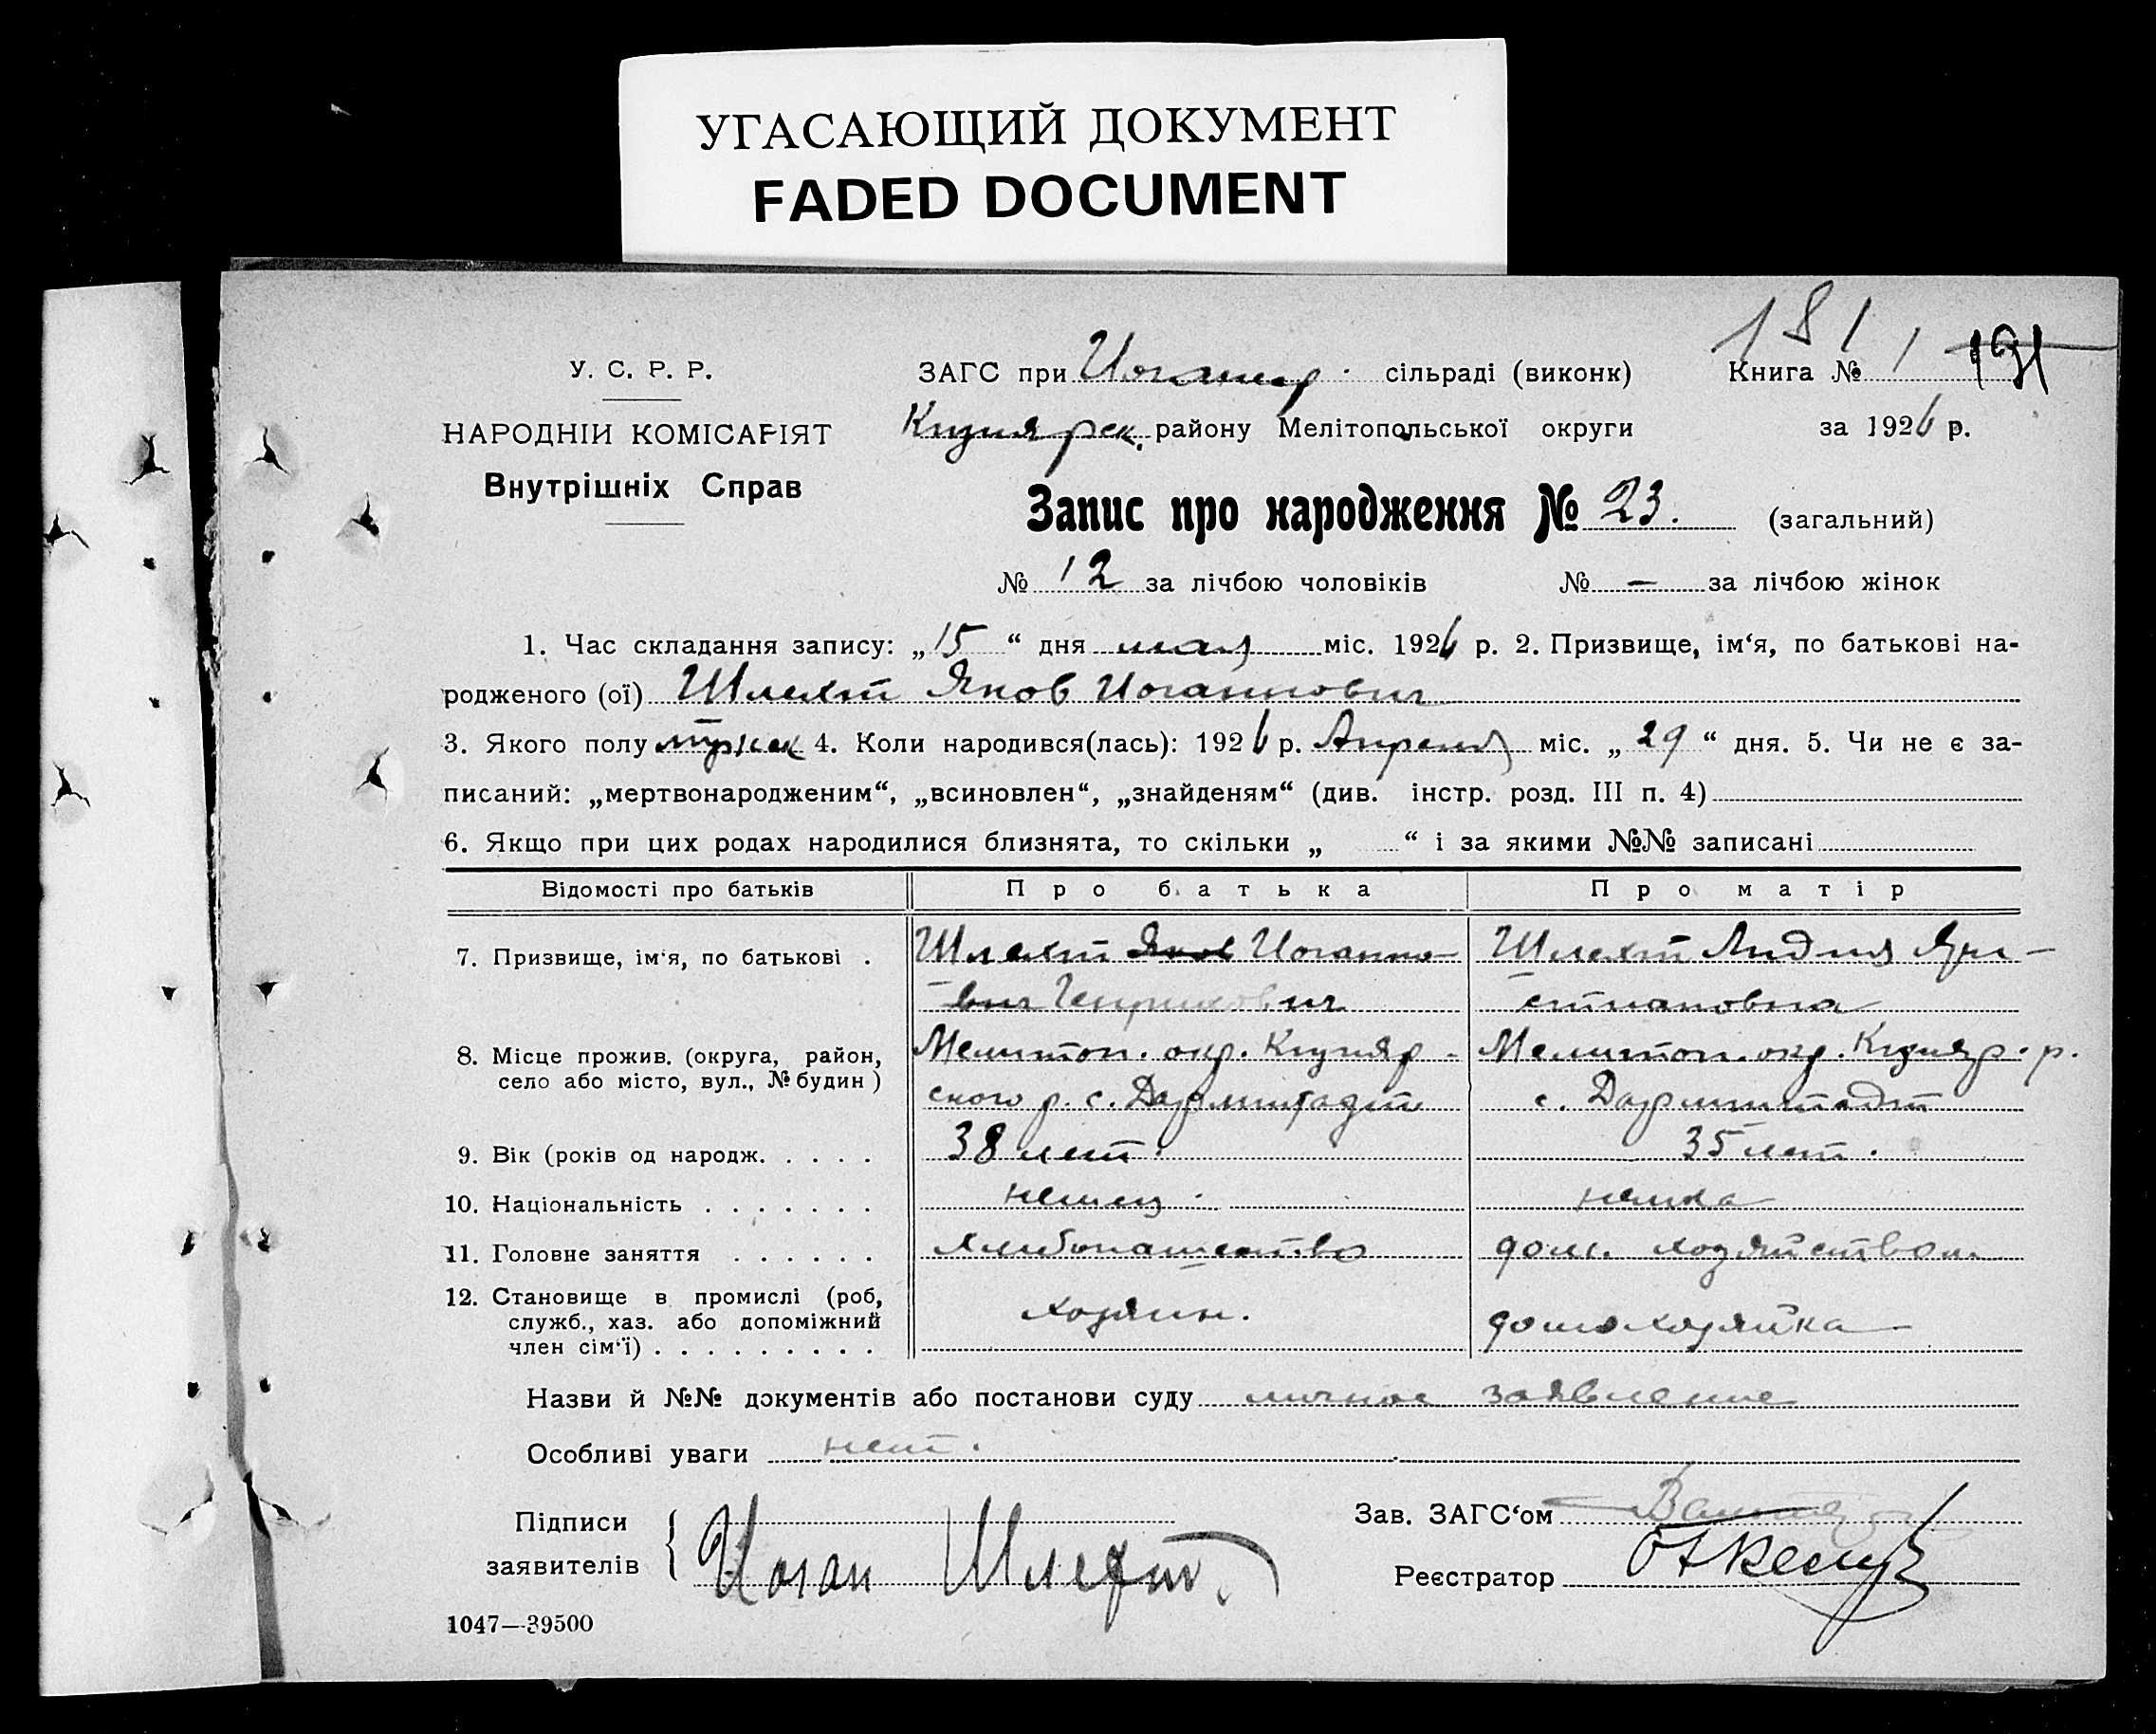 УГАСАЮЩИЙ ДОКУМЕНТ
FADED DOCUMENT
181
У. С. Р. Р.
ЗАГС при сільраді (виконк) Книга № 1 191
НАРОДНІЙ КОМІСАРІЯТ
Кизиярск. району Мелітопольської округи за 1926 р.
Внутрішніх Справ
Запис про народження № 23. (загальний)
№ 12 за лічбою чоловіків № — за лічбою жінок
1. Час складання запису: „15“ дня мая міс. 1926 р. 2. Призвище, ім‘я, по батькові на-
родженого (ої) Шлехт Яков Иоганнович
3. Якого полу мужск 4. Коли народився(лась): 1926 р. Апреля міс. „29“ дня. 5. Чи не є за-
писаний: „мертвонародженим“, „всиновлен“, „знайденям“ (див. інстр. розд. III п. 4)
6. Якщо при цих родах народилися близнята, то скільки „ “ і за якими №№ записані
Відомості про батьків Про батька Про матір
7. Призвище, ім‘я, по батькові . Шлехт Яков Иоганно- Шлехт Лидия Хри-
вич Генрихович стиановна
8. Місце прожив. (округа, район, Мелитоп. окр. Кизияр- Мелитоп. окр. Кизияр. р.
село або місто, вул., № будин) ского р. с. Дармштадт с. Дармштадт
9. Вік (років од народж. . . . . 38 лет. 35 лет.
10. Національність . . . . . . . немец. немка
11. Головне заняття . . . . . . хлибопашество дом. хозяйством
12. Становище в промислі (роб, хозяин. домохозяйка
служб., хаз. або допоміжний
член сім‘ї) . . . . . . . . .
Назви й №№ документів або постанови суду личное заявление
Особливі уваги нет.
Підписи
заявителів { Иоган Шлехт.
Зав. ЗАГС‘ом
Реєстратор
1047—39500